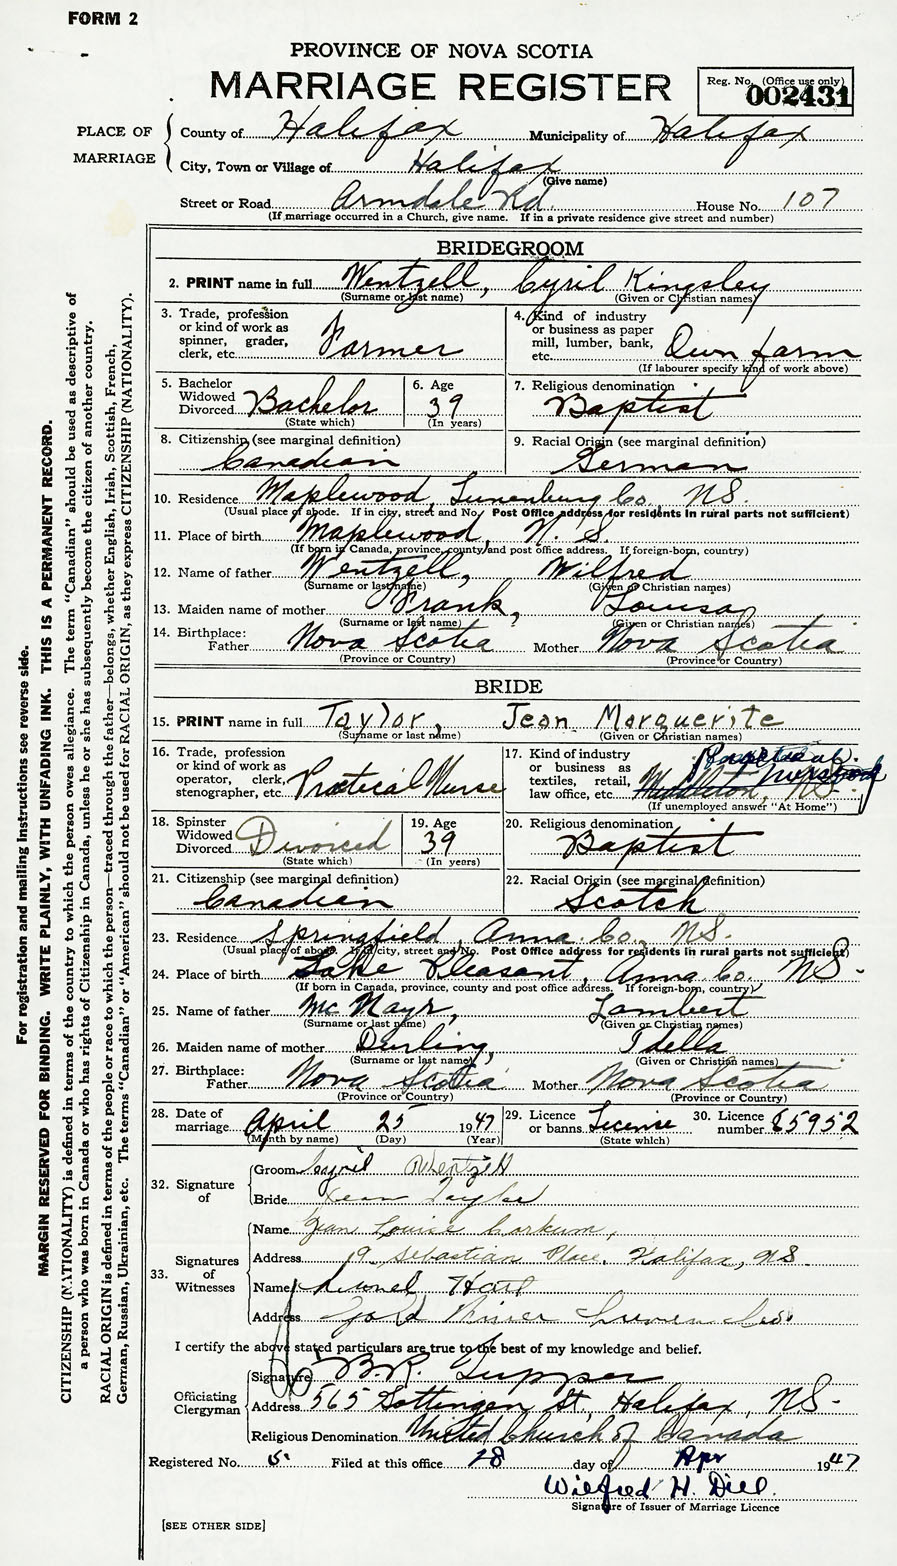 FORM 2
PROVINCE OF NOVA SCOTIA
MARRIAGE REGISTER
Reg. No. (Office use only)
002431
PLACE OF MARRIAGE
County of Halifax Municipality of Halifax
City, Town or Village of Halifax
(Give name)
Street or Road Armdale Rd. House No. 107
(If marriage occurred in a Church, give name. If in a private residence give street and number)
BRIDEGROOM
2. PRINT name in full Wentzell, Cyril Kingsley
(Surname or last name) (Given or Christian names)
3. Trade, profession or kind of work as spinner, grader, clerk, etc. Farmer
4. Kind of industry or business as paper mill, lumber, bank, etc. Own farm
(If labourer specify kind of work above)
5. Bachelor Widowed Divorced Bachelor
(State which)
6. Age 39
(In years)
7. Religious denomination Baptist
8. Citizenship (see marginal definition) Canadian
9. Racial Origin (see marginal definition) German
10. Residence Maplewood, Lunenburg Co. NS.
(Usual place of abode. If in city, street and No. Post Office address for residents in rural parts not sufficient)
11. Place of birth Maplewood, N. S.
(If born in Canada, province, county and post office address. If foreign-born, country)
12. Name of father Wentzell, Wilfred
(Surname or last name) (Given or Christian names)
13. Maiden name of mother Frank, Louisa
(Surname or last name) (Given or Christian names)
14. Birthplace: Father Nova Scotia Mother Nova Scotia
(Province or Country) (Province or Country)
BRIDE
15. PRINT name in full Taylor, Jean Marguerite
(Surname or last name) (Given or Christian names)
16. Trade, profession or kind of work as operator, clerk, stenographer, etc. Practical Nurse
17. Kind of industry or business as textiles, retail, law office, etc. Practical Middleton, NS.
(If unemployed answer "At Home")
18. Spinster Widowed Divorced Divorced
(State which)
19. Age 39
(In years)
20. Religious denomination Baptist
21. Citizenship (see marginal definition) Canadian
22. Racial Origin (see marginal definition) Scotch
23. Residence Springfield, Anna. Co., NS.
(Usual place of abode. If in city, street and No. Post Office address for residents in rural parts not sufficient)
24. Place of birth Lake Pleasant, Anna Co. NS -
(If born in Canada, province, county and post office address. If foreign-born, country)
25. Name of father McNayr, Lambert
(Surname or last name) (Given or Christian names)
26. Maiden name of mother Durling, Idella
(Surname or last name) (Given or Christian names)
27. Birthplace: Father Nova Scotia Mother Nova Scotia
(Province or Country) (Province or Country)
28. Date of marriage April 25 1947
(Month by name) (Day) (Year)
29. Licence or banns License
(State which)
30. Licence number 85952
32. Signature of
Groom Cyril Wentzell
Bride Jean Taylor
33. Signatures of Witnesses
Name Jean Louise Corkum,
Address 19 Sebastian Place, Halifax, NS.
Name Lionel Hart
Address Gold River Lunen Co.
I certify the above stated particulars are true to the best of my knowledge and belief.
Officiating Clergyman
Signature B.R. Tupper
Address 565 Gottingen St., Halifax, NS -
Religious Denomination United Church of Canada
Registered No. 5. Filed at this office 28 day of Apr 1947
Wilfred H. Dill.
Signature of Issuer of Marriage Licence
[SEE OTHER SIDE]
For registration and mailing instructions see reverse side.
MARGIN RESERVED FOR BINDING. WRITE PLAINLY, WITH UNFADING INK. THIS IS A PERMANENT RECORD.
CITIZENSHIP (NATIONALITY) is defined in terms of the country to which the person owes allegiance. The term "Canadian" should be used as descriptive of
a person who was born in Canada or who has rights of Citizenship in Canada, unless he or she has subsequently become the citizen of another country.
RACIAL ORIGIN is defined in terms of the people or race to which the person—traced through the father—belongs, whether English, Irish, Scottish, French,
German, Russian, Ukrainian, etc. The terms "Canadian" or "American" should not be used for RACIAL ORIGIN, as they express CITIZENSHIP (NATIONALITY).